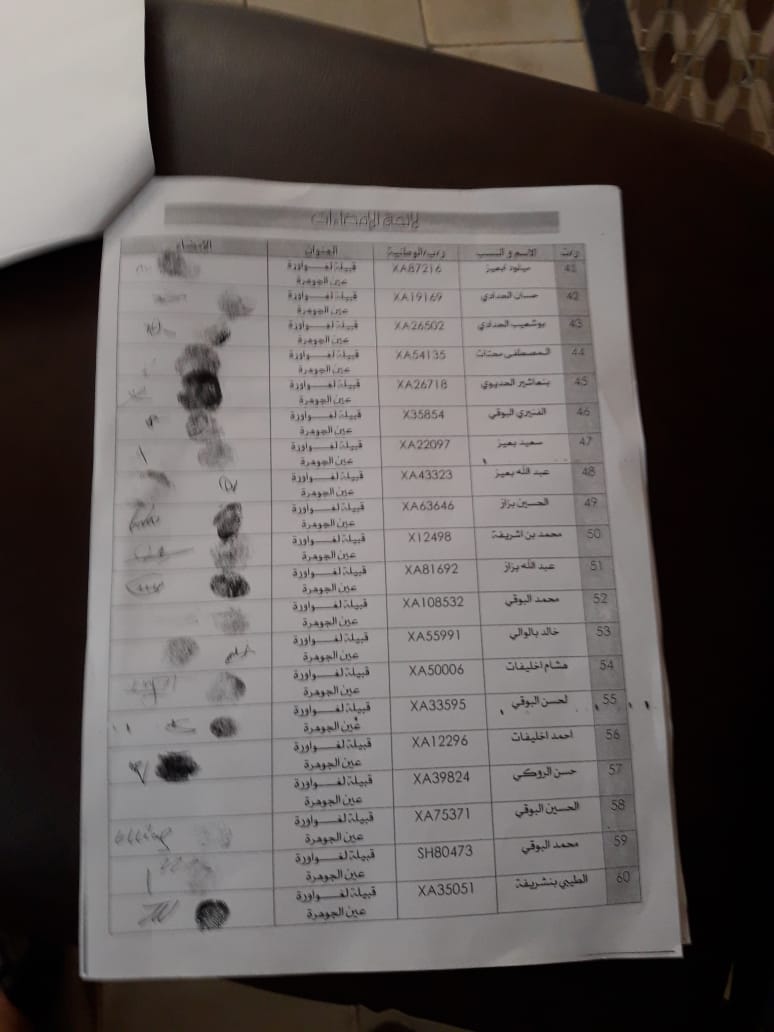 لائحة الإمضاءات
ر/ت الاسم و النسب ر/ب/الوطنية العنوان الامضاء
41 ميلود لبعيز XA87216 قبيلة لغـــواورة
عين الجوهرة
42 حسان الحدادي XA19169 قبيلة لغـــواورة
عين الجوهرة
43 بوشعيب الحدادي XA26502 قبيلة لغـــواورة
عين الجوهرة
44 المصطفى محتات XA54135 قبيلة لغـــواورة
عين الجوهرة
45 بنعاشير الحديوي XA26718 قبيلة لغـــواورة
عين الجوهرة
46 البوقي X35854 قبيلة لغـــواورة
عين الجوهرة
47 سعيد بعيز XA22097 قبيلة لغـــواورة
عين الجوهرة
48 عبد الله بعيز XA43323 قبيلة لغـــواورة
عين الجوهرة
49 الحسين بزاز XA63646 قبيلة لغـــواورة
عين الجوهرة
50 محمد بن اشريفة X12498 قبيلة لغـــواورة
عين الجوهرة
51 عبد الله بزاز XA81692 قبيلة لغـــواورة
عين الجوهرة
52 محمد البوقي XA108532 قبيلة لغـــواورة
عين الجوهرة
53 خالد بالوالي XA55991 قبيلة لغـــواورة
عين الجوهرة
54 هشام اخليفات XA50006 قبيلة لغـــواورة
عين الجوهرة
55 لحسن البوقي XA33595 قبيلة لغـــواورة
عين الجوهرة
56 احمد اخليفات XA12296 قبيلة لغـــواورة
عين الجوهرة
57 حسن الروكي XA39824 قبيلة لغـــواورة
عين الجوهرة
58 الحسين البوقي XA75371 قبيلة لغـــواورة
عين الجوهرة
59 محمد البوقي SH80473 قبيلة لغـــواورة
عين الجوهرة
60 الطيبي بنشريفة XA35051 قبيلة لغـــواورة
عين الجوهرة